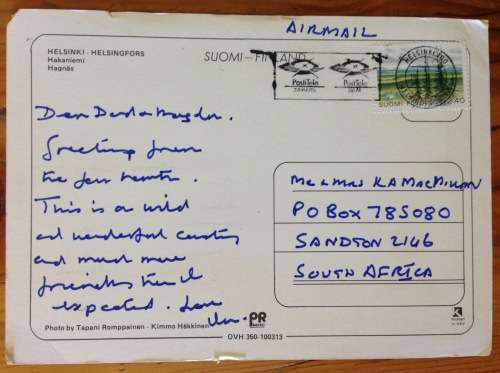 AIRMAIL
HELSINKI - HELSINGFORS
Hakaniemi
Hagnäs
SUOMI - FINLAND
HELSINKI
PosiTele
PosiTele
SUOMI FINLAND
Greetings from
the far north.
This is a wild
and wonderful country
and much more
friendly than I
expected. Love
MR & MRS K A MACMILLAN
PO BOX 785080
SANDTON 2146
SOUTH AFRICA
Photo by Tapani Romppainen - Kimmo Häkkinen
PR
OVH 350-100313
K